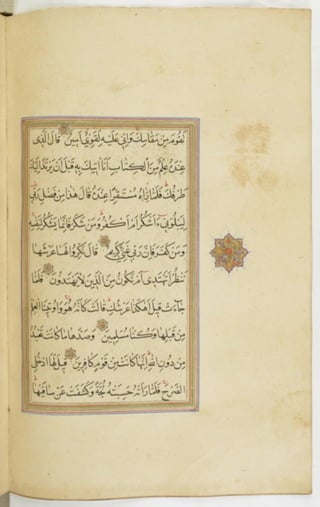 تَقُومَ مِن مَّقَامِكَ وَإِنِّي عَلَيْهِ لَقَوِيٌّ أَمِينٌ قَالَ الَّذِي
عِندَهُ عِلْمٌ مِّنَ الْكِتَابِ أَنَا آتِيكَ بِهِ قَبْلَ أَن يَرْتَدَّ إِلَيْكَ
طَرْفُكَ فَلَمَّا رَآهُ مُسْتَقِرًّا عِندَهُ قَالَ هَذَا مِن فَضْلِ رَبِّي
لِيَبْلُوَنِي أَأَشْكُرُ أَمْ أَكْفُرُ وَمَن شَكَرَ فَإِنَّمَا يَشْكُرُ لِنَفْسِهِ
وَمَن كَفَرَ فَإِنَّ رَبِّي غَنِيٌّ كَرِيمٌ قَالَ نَكِّرُوا لَهَا عَرْشَهَا
نَنظُرْ أَتَهْتَدِي أَمْ تَكُونُ مِنَ الَّذِينَ لَا يَهْتَدُونَ فَلَمَّا
جَاءَتْ قِيلَ أَهَكَذَا عَرْشُكِ قَالَتْ كَأَنَّهُ هُوَ وَأُوتِينَا الْعِلْمَ
مِن قَبْلِهَا وَكُنَّا مُسْلِمِينَ وَصَدَّهَا مَا كَانَت تَّعْبُدُ
مِن دُونِ اللَّهِ إِنَّهَا كَانَتْ مِن قَوْمٍ كَافِرِينَ قِيلَ لَهَا ادْخُلِي
الصَّرْحَ فَلَمَّا رَأَتْهُ حَسِبَتْهُ لُجَّةً وَكَشَفَتْ عَن سَاقَيْهَا